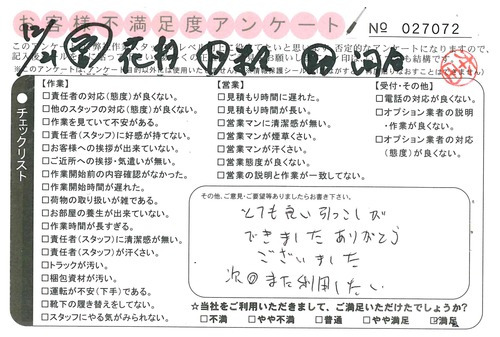 お客様不満足度アンケート
№ 027072
12/21
チェックリスト
【作業】
□責任者の対応(態度)が良くない。
□他のスタッフの対応(態度)が良くない。
□作業を見ていて不安がある。
□責任者(スタッフ)に好感が持てない。
□お客様への挨拶が出来ていない。
□ご近所への挨拶・気遣いが無い。
□作業開始前の内容確認がなかった。
□作業開始時間が遅れた。
□荷物の取り扱いが雑である。
□お部屋の養生が出来ていない。
□作業時間が長すぎる。
□責任者(スタッフ)に清潔感が無い。
□責任者(スタッフ)が汗くさい。
□トラックが汚い。
□梱包資材が汚い。
□運転が不安(下手)である。
□靴下の履き替えをしてない。
□スタッフにやる気がみられない。
【営業】
□見積もり時間に遅れた。
□見積もり時間が長い。
□営業マンに清潔感が無い。
□営業マンが煙草くさい。
□営業マンが汗くさい。
□営業態度が良くない。
□営業の説明と作業が一致してない。
【受付・その他】
□電話の対応が良くない。
□オプション業者の説明
・作業が良くない。
□オプション業者の対応
(態度)が良くない。
その他、ご意見・ご要望等ありましたらお書き下さい。
とても良い引っこしが
できました ありがとう
ございました
次回また利用したい
☆当社をご利用いただきまして、ご満足いただけたでしょうか?
□不満 □やや不満 □普通 □やや満足 ☑満足